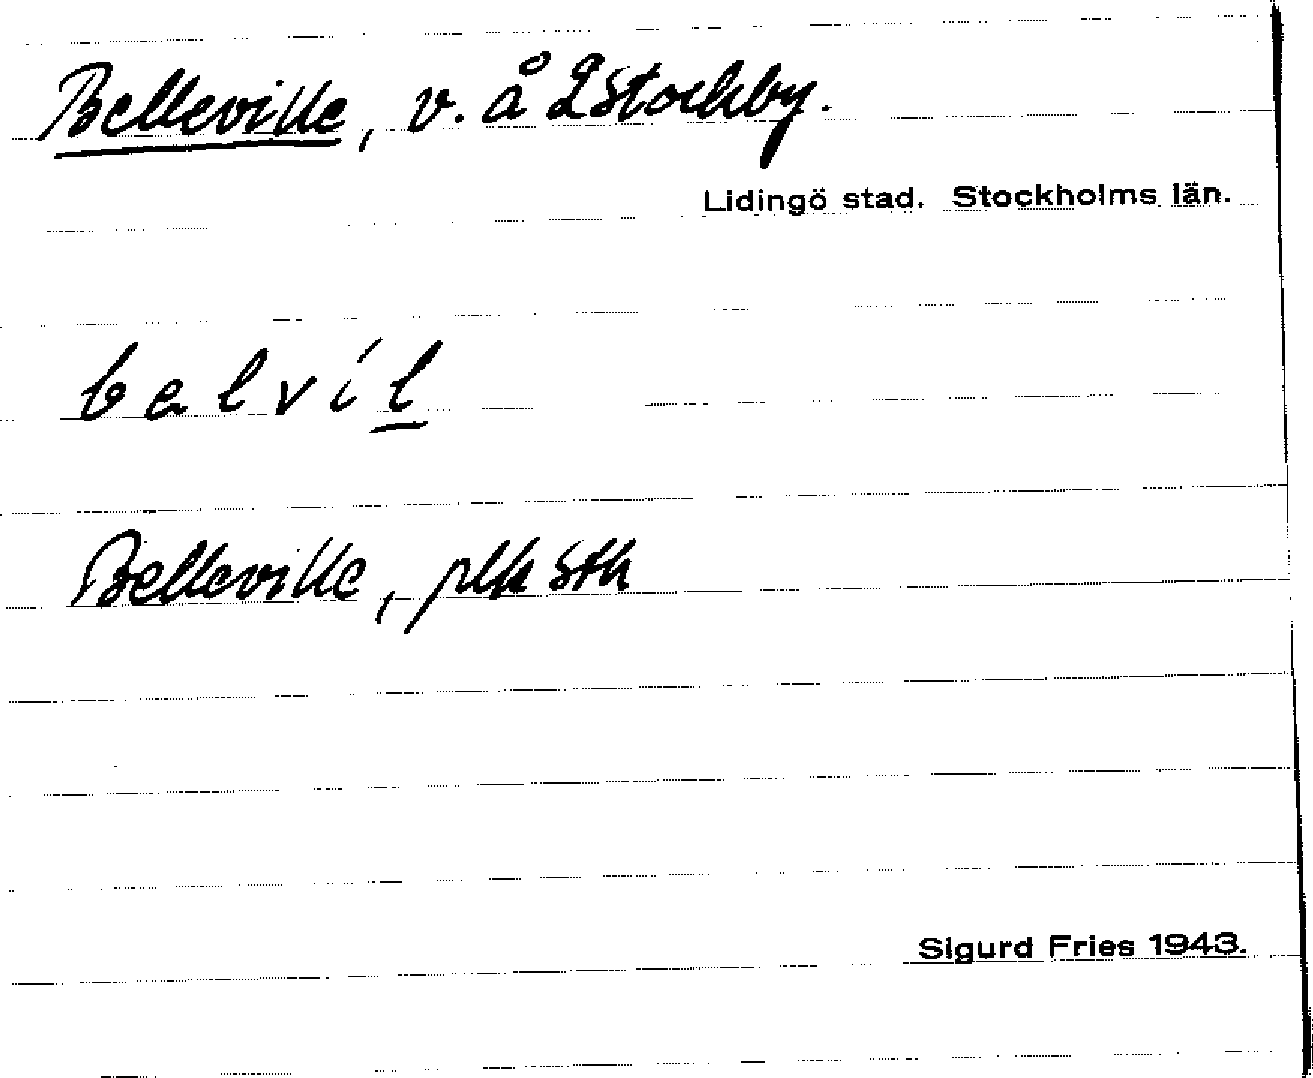 Belleville, v. å 2 Stockby.
Lidingö stad. Stockholms län.
belvíl
Belleville, plk Sth
Sigurd Fries 1943.